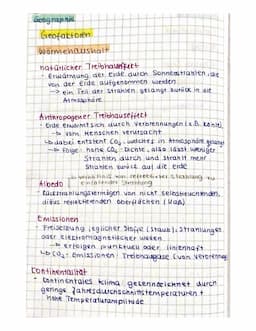 Geographie
Geofaktoren
Wärmehaushalt
natürlicher Treibhauseffekt
• Erwärmung der Erde durch Sonnenstrahlen, die
von der Erde aufgenommen werden
→ ein Teil der Strahlen gelangt zurück in die
Atmosphäre
Anthropogener Treibhauseffekt
• Erde erwärmt sich durch Verbrennungen (z.B. Kohle)
↳ vom Menschen verursacht
↳ dabei entsteht CO₂, welches in Atmosphäre gelangt
↳ Folge: hohe CO₂-Dichte, also lässt weniger
Strahlen durch und strahlt mehr
Strahlen zurück auf die Erde
↳ Verhältnis von reflektierter Strahlung zu
einfallender Strahlung
Albedo
• Rückstrahlungsvermögen von nicht selbstleuchtenden,
diffus reflektierenden Oberflächen (Maß)
Emissionen
• Freisetzung jeglicher Stoffe (Staub), Strahlungen
oder elektromagnetischer Wellen
→ erfolgen punktuell oder linienhaft
↳ CO₂-Emissionen: Treibhausgase (von Verbrennung)
Kontinentalität
• Kontinentales Klima gekennzeichnet durch
geringe Jahresdurchschnittstemperaturen +
hohe Temperaturamplitude